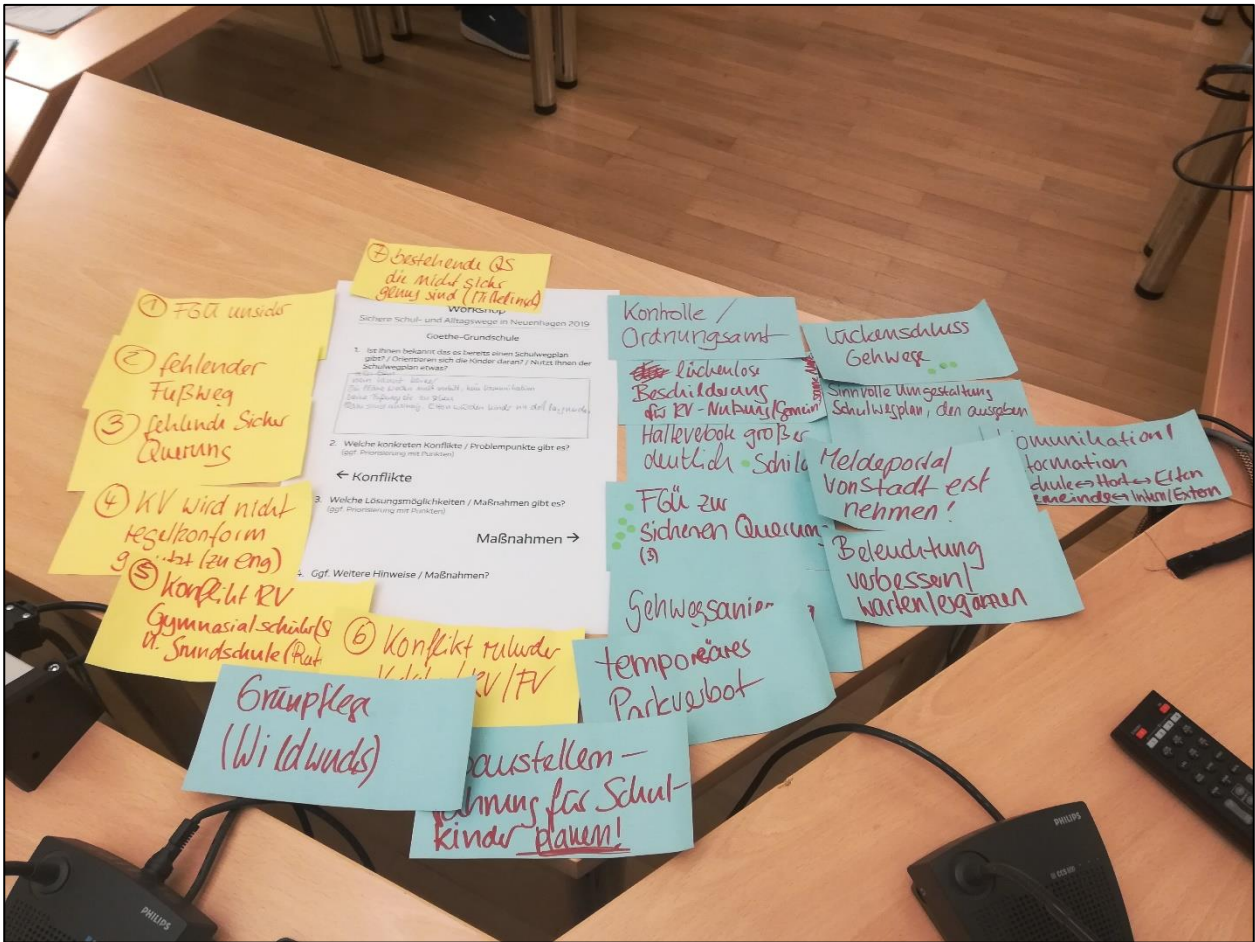 ⑦ bestehende QS
die nicht sicher
genug sind (Mittelinsel)
① FGÜ unsicher
② fehlender
Fußweg
③ fehlende Sichere
Querung
④ RV wird nicht
regelkonform
(zu eng)
⑤ Konflikt RV
Gymnasialschüler
u. Grundschule
⑥ Konflikt ruhender
RV/FV
Workshop
Sichere Schul- und Alltagswege in Neuenhagen 2019
Goethe-Grundschule
1. Ist Ihnen bekannt das es bereits einen Schulwegplan
gibt? / Orientieren sich die Kinder daran? / Nutzt Ihnen der
Schulwegplan etwas?
2. Welche konkreten Konflikte / Problempunkte gibt es?
(ggf. Priorisierung mit Punkten)
← Konflikte
3. Welche Lösungsmöglichkeiten / Maßnahmen gibt es?
(ggf. Priorisierung mit Punkten)
Maßnahmen →
4. Ggf. Weitere Hinweise / Maßnahmen?
Kontrolle /
Ordnungsamt
lückenlose
Beschilderung
für RV-Nutzung/
Halteverbote großer
deutlich Schild
FGÜ zur
sicheren Querung
(3)
Gehwegsanier
temporäres
Parkverbot
Lückenschluss
Gehwege
Sinnvolle Umgestaltung
Schulwegplan, den ausgeben
Meldeportal
von Stadt erst
nehmen!
Beleuchtung
verbessern/
warten/ergänzen
omunikation/
formation
chule ↔ Hort ↔ Eltern
emeinde ↔ Intern/Extern
Grünpflege
(Wildwuchs)
baustellen-
für Schul-
kinder planen!
PHILIPS
PHILIPS